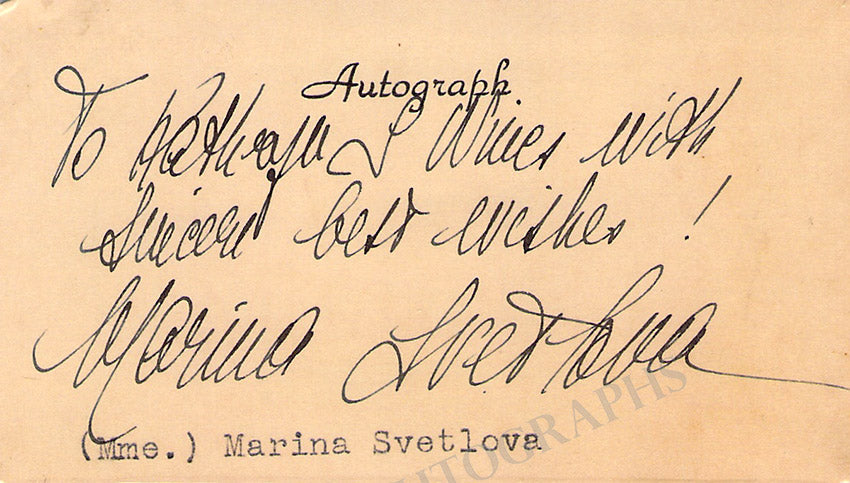 Autograph
To Kathryn S Wines with
sincere best wishes !
Marina Svetlova
(Mme.) Marina Svetlova
AUTOGRAPHS